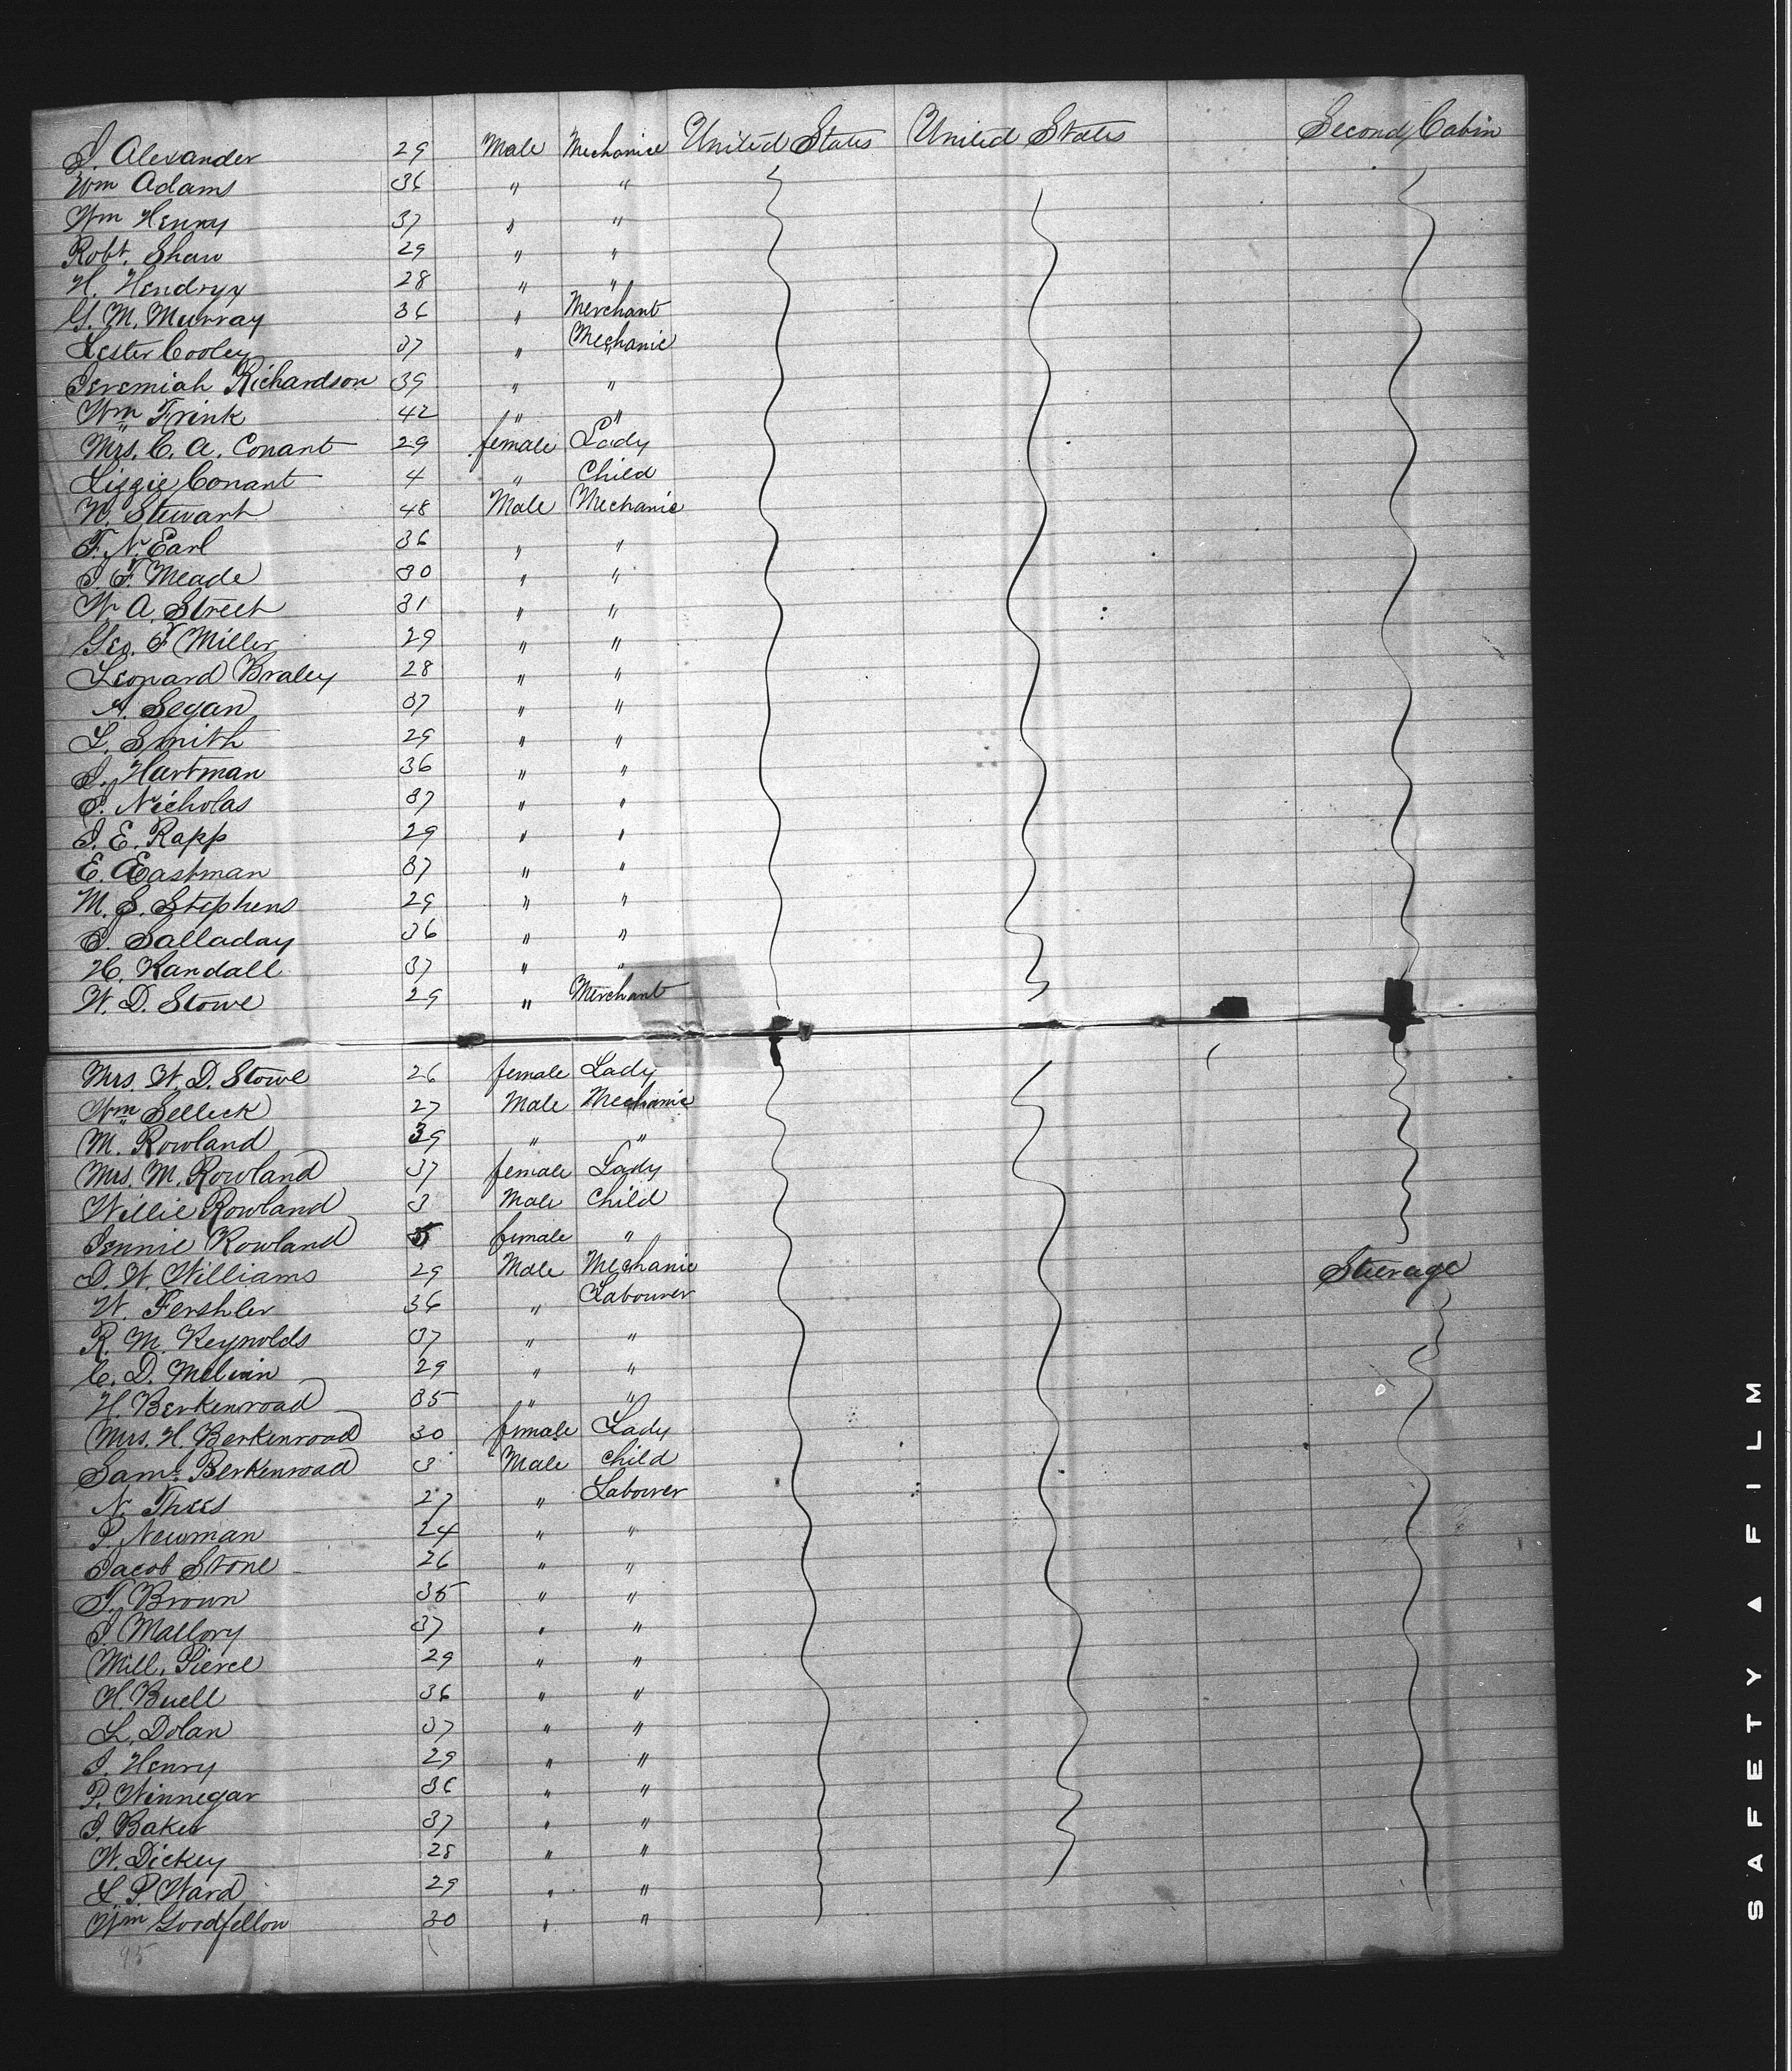 J. Alexander 29 Male Mechanic United States United States Second Cabin
Wm Adams 36 " "
Wm Henry 37 " "
Robt. Shaw 29 " "
H. Hendryx 28 " "
G. M. Murray 36 " Merchant
Lester Cooley 37 " Mechanic
Jeremiah Richardson 39 " "
Wm Frink 42 " "
Mrs. C. A. Conant 29 female Lady
Lizzie Conant 4 " Child
W. Stewart 48 Male Mechanic
F. N. Earl 36 " "
J. F. Meade 30 " "
W. A. Street 31 " "
Geo. F. Miller 29 " "
Leonard Braley 28 " "
A. Segan 37 " "
L. Smith 29 " "
J. Hartman 36 " "
J. Nicholas 37 " "
J. E. Rapp 29 " "
E. Eastman 37 " "
M. S. Stephens 29 " "
J. Salladay 36 " "
H. Randall 37 " "
W. D. Stowe 29 " Merchant
Mrs. W. D. Stowe 26 female Lady
Wm Selleck 27 Male Mechanic
M. Rowland 39 " "
Mrs. M. Rowland 37 female Lady
Willie Rowland 3 Male Child
Jennie Rowland 5 female "
D. W. Williams 29 Male Mechanic Steerage
W. Fershler 36 " Labourer
R. M. Reynolds 37 " "
C. D. Melvin 29 " "
H. Berkenroad 35 " "
Mrs. H. Berkenroad 30 female Lady
Saml. Berkenroad 3 Male Child
N. Thees 27 " Labourer
P. Newman 24 " "
Jacob Stone 26 " "
T. Brown 35 " "
J. Mallory 37 " "
Mill. Pierce 29 " "
H. Buell 36 " "
L. Dolan 37 " "
J. Henry 29 " "
P. Winnegar 36 " "
J. Baker 37 " "
W. Dickey 28 " "
L. P. Ward 29 " "
Wm Goodfellow 30 " "
95
SAFETY ▲ FILM